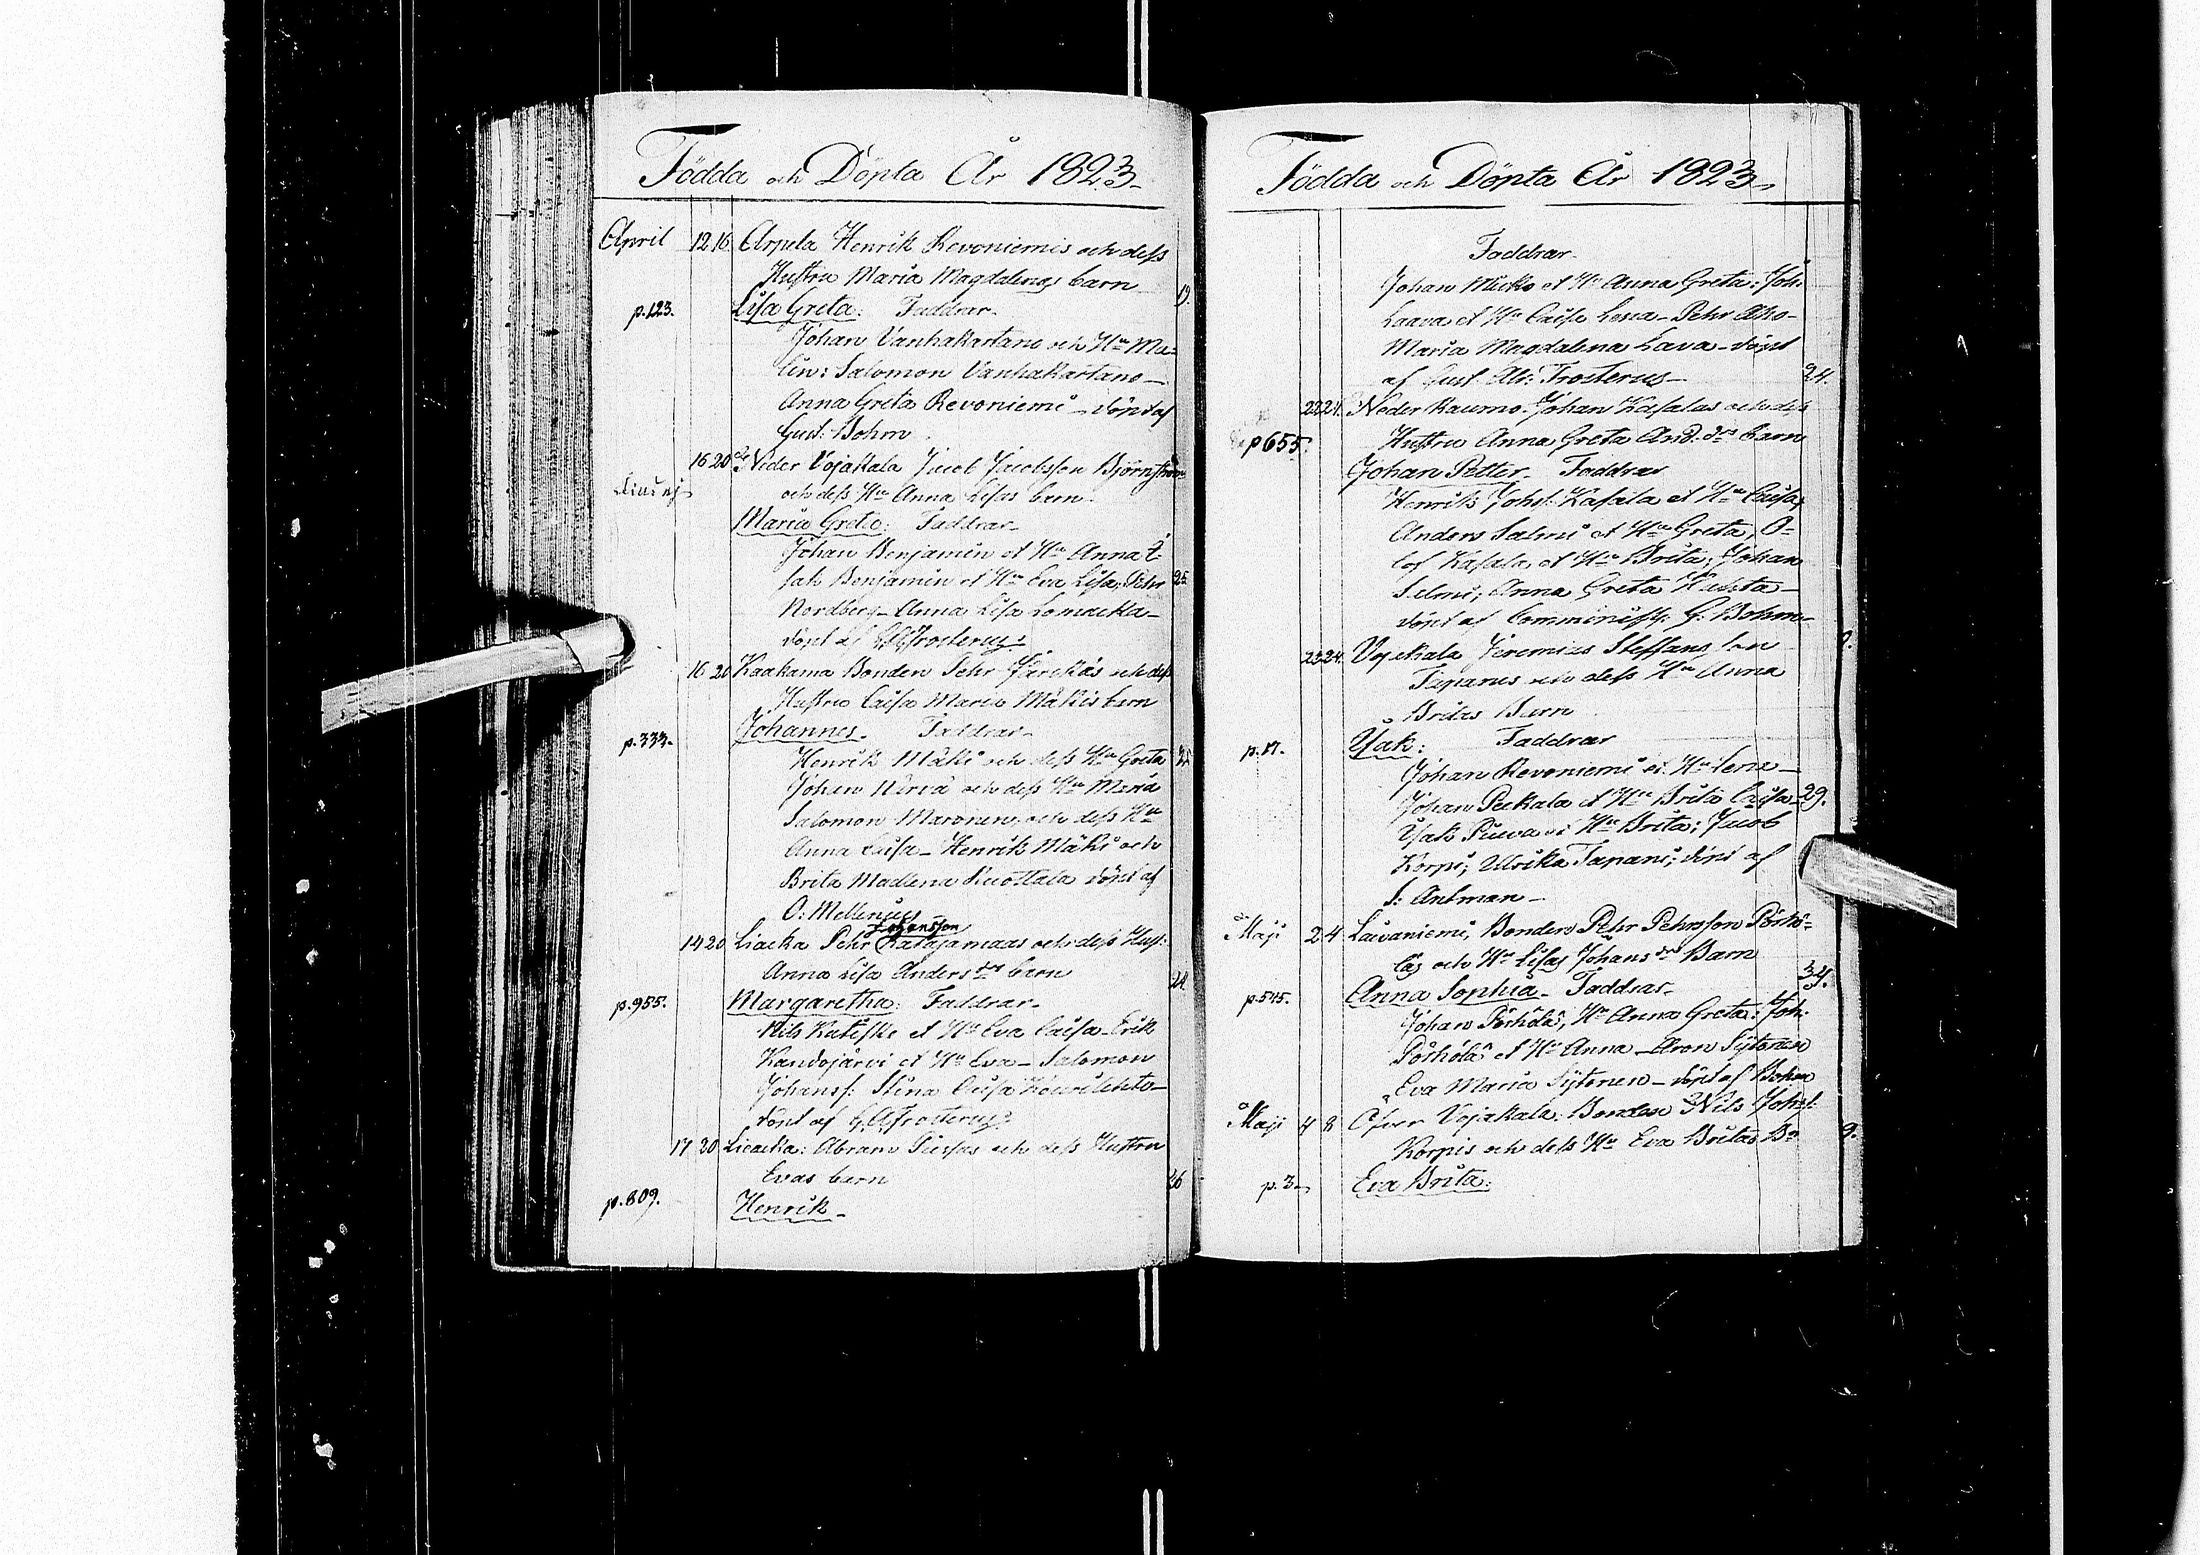 Födda och Döpta År 1823
April 12 16 Arpela Henrik Revoniemis och dess
Hustru Maria Magdalenas barn 19.
p.123. Lisa Greta: Faddrar
Johan Vanhakartano och Hu Ma-
lin: Salomon Vanhakartano
Anna Greta Revoniemi döpt af
Gust: Bohm
16 20 Neder Vojakala Jacob Jacobsson Björnström
och dess Hu Anna Lisas barn
Maria Greta: Faddrar
Johan Benjamin et Hu Anna I-
sak Benjamin et Hu Eva Lisa; Pehr 25
Nordberg Anna Lisa
döpt af Frosterus
16 20 Kaakama Bonden Pehr och dess
Hustru Caisa Maria Mäkis barn
p.333. Johannes Faddrar
Henrik Mäki och dess Hu Greta 35
Johan och dess Hu Maria
Salomon Maronen och dess Hu
Anna Caisa Henrik Mäki och
Brita Madlena döpt af
O: Mellenius
Johansson
14 20 Liacka Pehr Katajamaas och dess Hus:
Anna Lisa Anders drs barn 24
p.955. Margaretha: Faddrar
Nils et Hu Eva Caisa Erik
Kandojärvi et Hu Eva Salomon
Johanss: Stina Caisa
döpt af Frosterus
17 20 Liacka: Abram och dess Hustru
Evas barn 26
p.809. Henrik
Födda och Döpta År 1823
Faddrar
Johan et Hu Anna Greta; Joh:
Laava et Hu Caisa Lena Pehr Aho
Maria Magdalena Lava döpt
af Gust. Ad: Frosterus 24.
22 24 Neder Raumo Johan Kasalas och dess
p 655. Hustru Anna Greta And. drs barn
Johan Petter Faddrar
Henrik Johs: Kasala et Hu Caisa,
Anders Salmi et Hu Greta, O-
lof Kasala et Hu Brita; Johan
Selmi; Anna Greta
döpt af G. Bohm
23 24 Vojakala Jeremias Steffans son
Tapanis och dess Hu Anna
Britas Barn
p.17. Isak: Faddrar
Johan Revoniemi et Hu Lena
Johan Peckala et Hu Brita Caisa 29.
Isak et Hu Brita; Jacob
Korpi; Ulrika Tapani; döpt af
J: Antman
Maji 2 4 Laivaniemi, Bonden Pehr Pehrsson Pörhö-
läs och Hu Lisas Johans drs Barn
p.545. Anna Sophia Faddrar 34.
Johan Pörhölä, Hu Anna Greta: Joh:
Pörhölä et Hu Anna Aron Sytonen
Eva Maria Sytonen döpt af Bohm
Maji 4 8 Öfver Vojakala: Bonden Nils Johs:
Korpis och dess Hu Eva Britas Bn 9.
p. 3 Eva Brita: